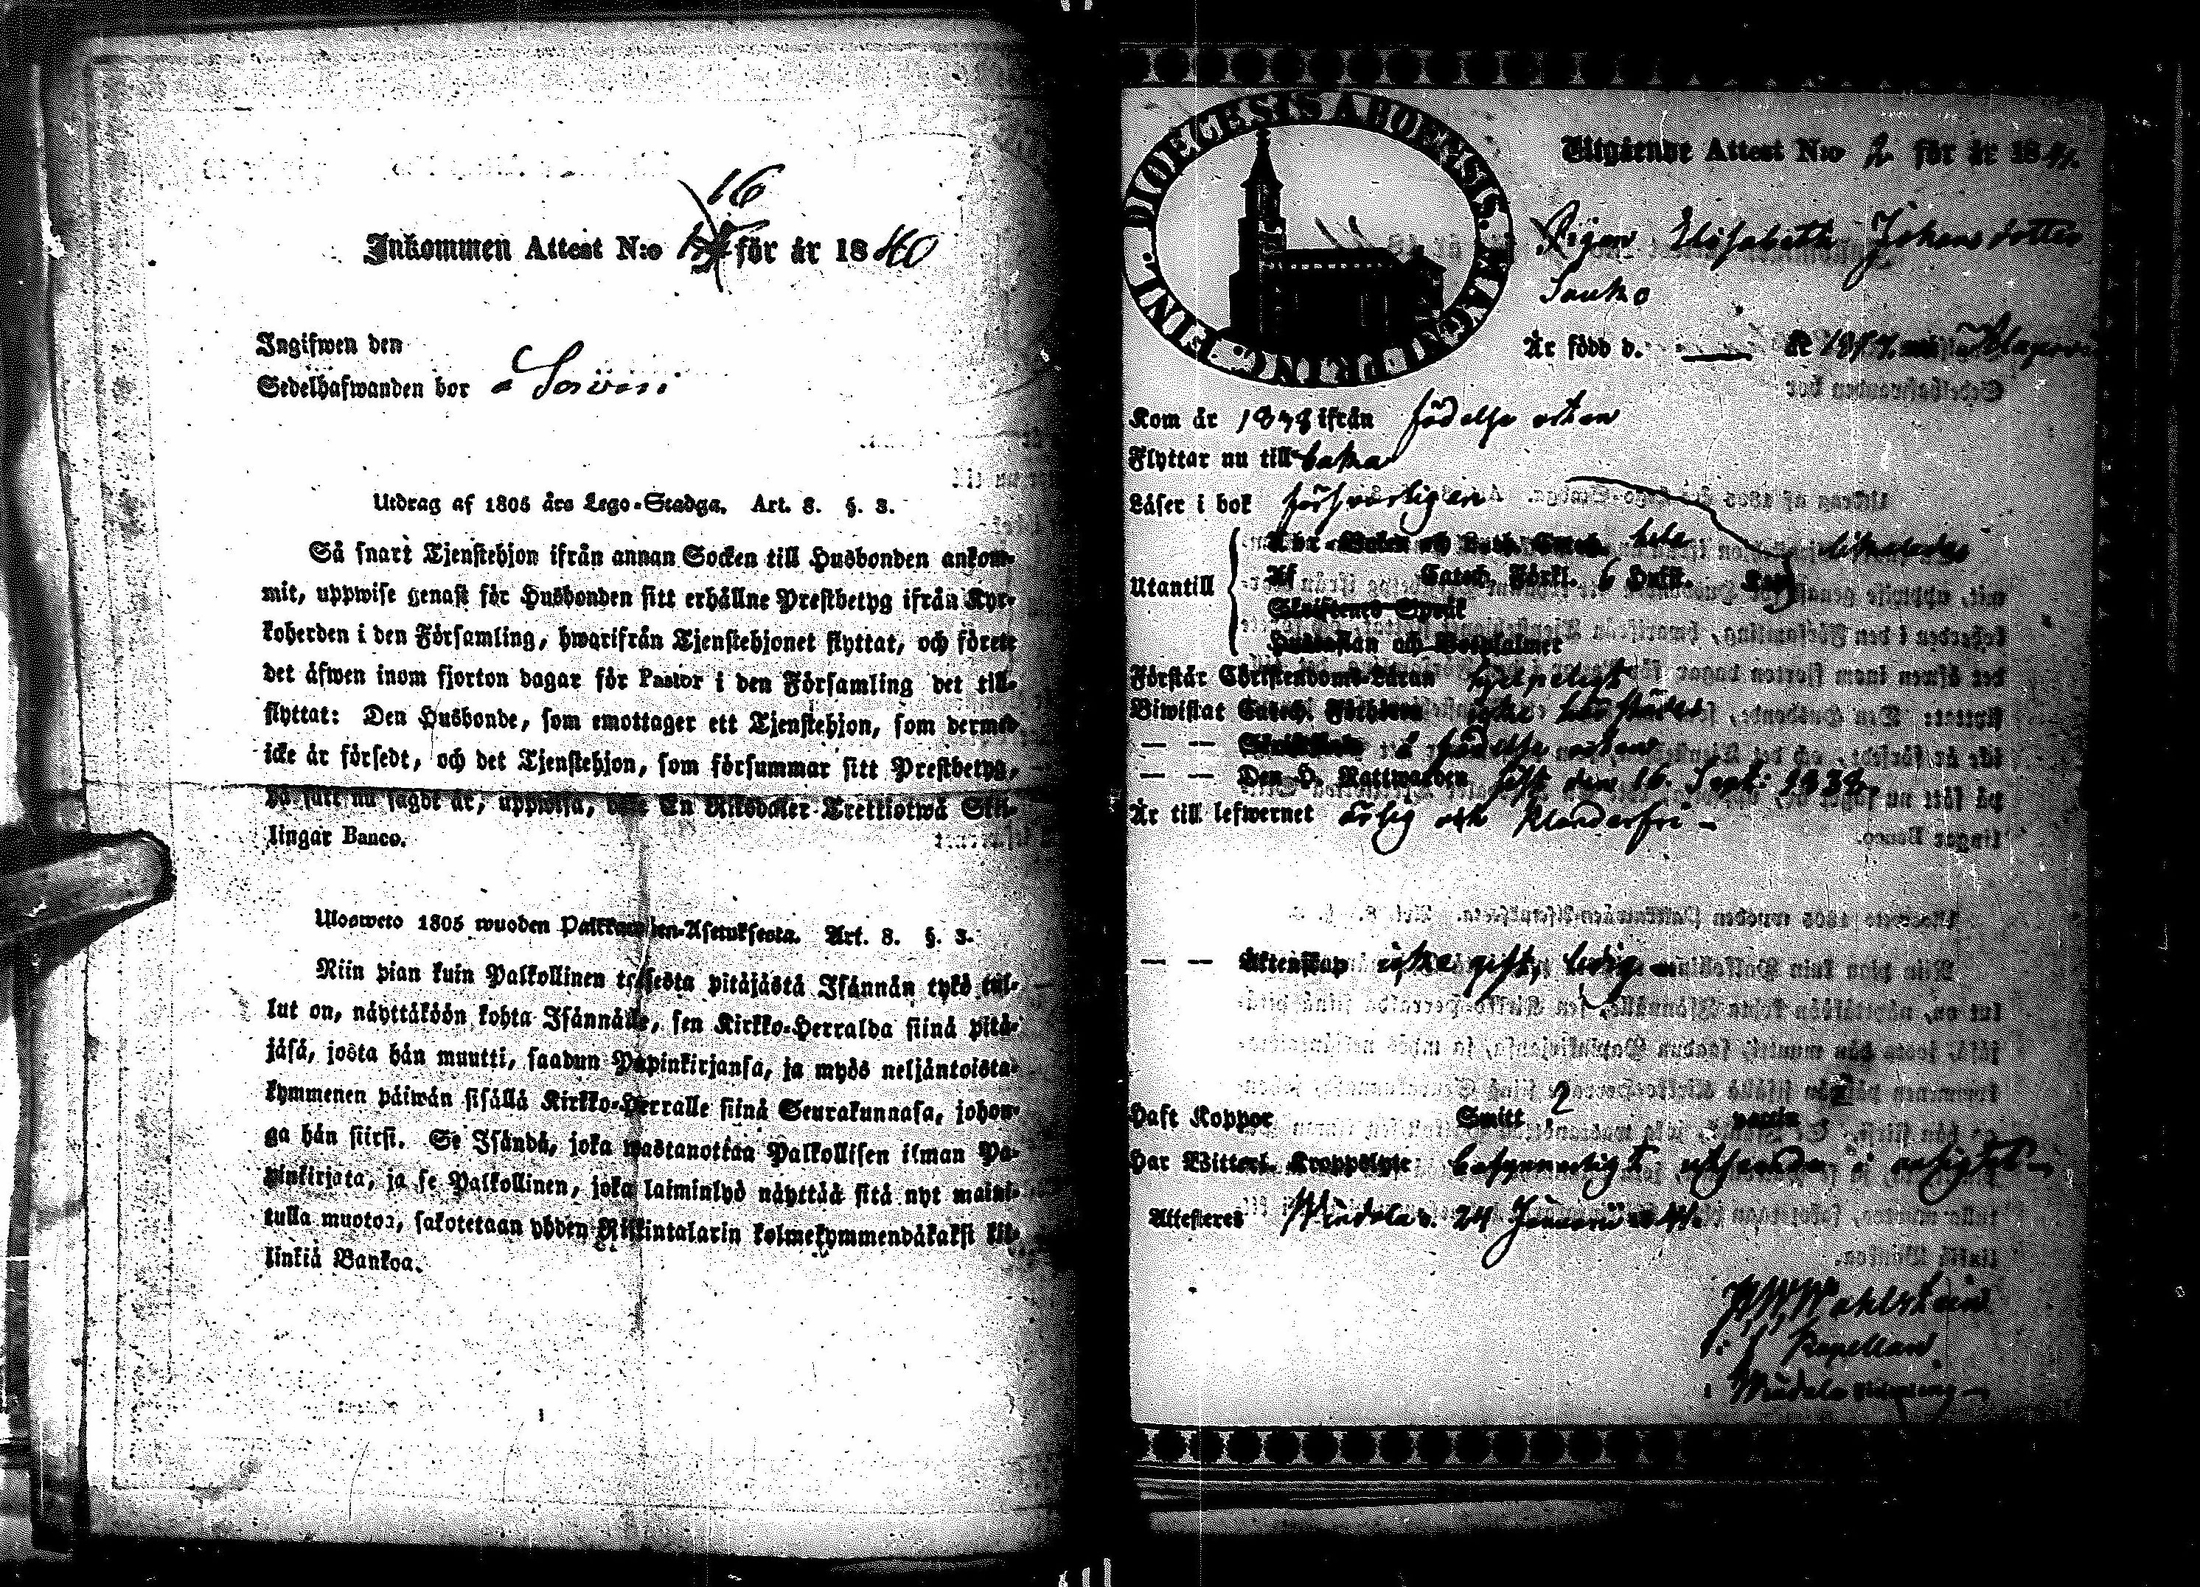 16
Inkommen Attest N:o för år 1840
Ingifwen den
Sedelhafwanden bor
Utdrag af 1805 års Lego-Stadga. Art. 8. §. 3.
Så snart Tjenstehjon ifrån annan Socken till Husbonden ankom-
mit, uppwise genast för Husbonden sitt erhållne Prestbetyg ifrån Kyr-
koherden i den Församling, hwarifrån Tjenstehjonet flyttat, och förete
det äfwen inom fjorton dagar för Pastor i den Församling det till-
flyttat: Den Husbonde, som emottager ett Tjenstehjon, som dermed
icke är försedt, och det Tjenstehjon, som försummar sitt Prestbetyg,
på sätt nu sagdt är, uppwisa, böte En Riksdaler Trettiotwå Skil-
lingar Banco.
Ulosweto 1805 wuoden Palkkawäen-Asetuksesta. Art. 8. §. 3.
Niin pian kuin Palkollinen toisesta pitäjästä Isännän tykö tul-
lut on, näyttäköön kohta Isännälle, sen Kirkko-Herralda siinä pitä-
jäsä, josta hän muutti, saadun Papinkirjansa, ja myös neljäntoista-
kymmenen päiwän sisällä Kirkko-Herralle siinä Seurakunnasa, johon-
ga hän siirsi. Se Isändä, joka wastanottaa Palkollisen ilman Pa-
pinkirjata, ja se Palkollinen, joka laiminlyö näyttää sitä nyt maini-
tulla muotoa, sakotetaan yhden Riikintalarin kolmekymmendäkaksi kil-
linkiä Bankoa.
DIOECESIS ABOENSIS. MAGNI. PRINC. FINL.
Utgående Attest N:o 2 för år 1841.
Pigan Elisabeth Johansdotter
Är född d. — år
Kom år 1838 ifrån födelse orten
Flyttar nu till baka
Läser i bok försvarligen
Utantill
A-b-c-Boken och Luth. Catech. hela
Af Catech. Förkl. 6 Hufst.
Skriftenes Språk
Hustaflan och Botpsalmer
Förstår Christendoms-Läran hjelpeligt
Biwistat Catech. Förhören
— — Skriftskola i födelse orten
— — Den H. Nattwarden sist den 16. Sept: 1838.
Är till lefwernet ärlig och klanderfri —
— — Äktenskap icke gift, ledig —
Haft Koppor Smitt
Har Witterl. Kroppslyte
Attesteras d. 24 Januarii 1841.
Kapellan